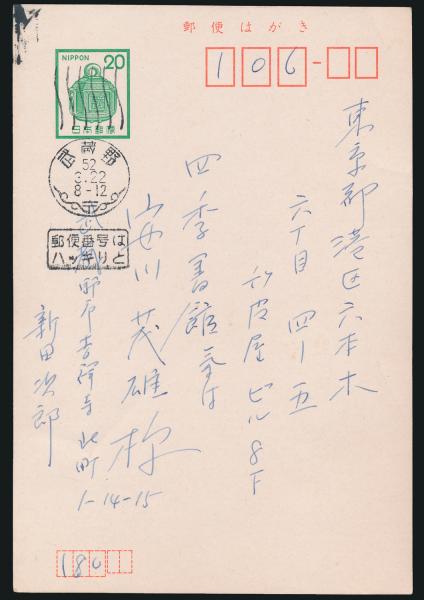 郵便はがき
NIPPON
20
日本郵便
106-
武蔵野
52
3.22
8-12
郵便番号は
ハッキリと
東京都港区六本木
六丁目四ー五
皮屋ビル8F
四季書館気付
安川茂雄様
武蔵野市吉祥寺北町
1-14-15
新田次郎
180